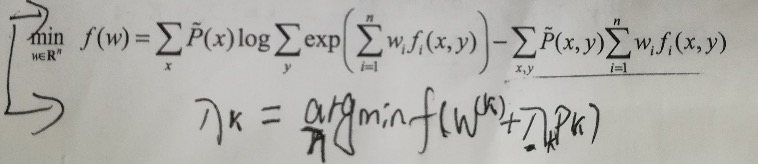 min w∈Rⁿ f(w) = ∑x P̃(x) log ∑y exp(∑i=1n wi fi(x, y)) − ∑x,y P̃(x, y) ∑i=1n wi fi(x, y)
λk = argmin λ f(W(k) + λk Pk)